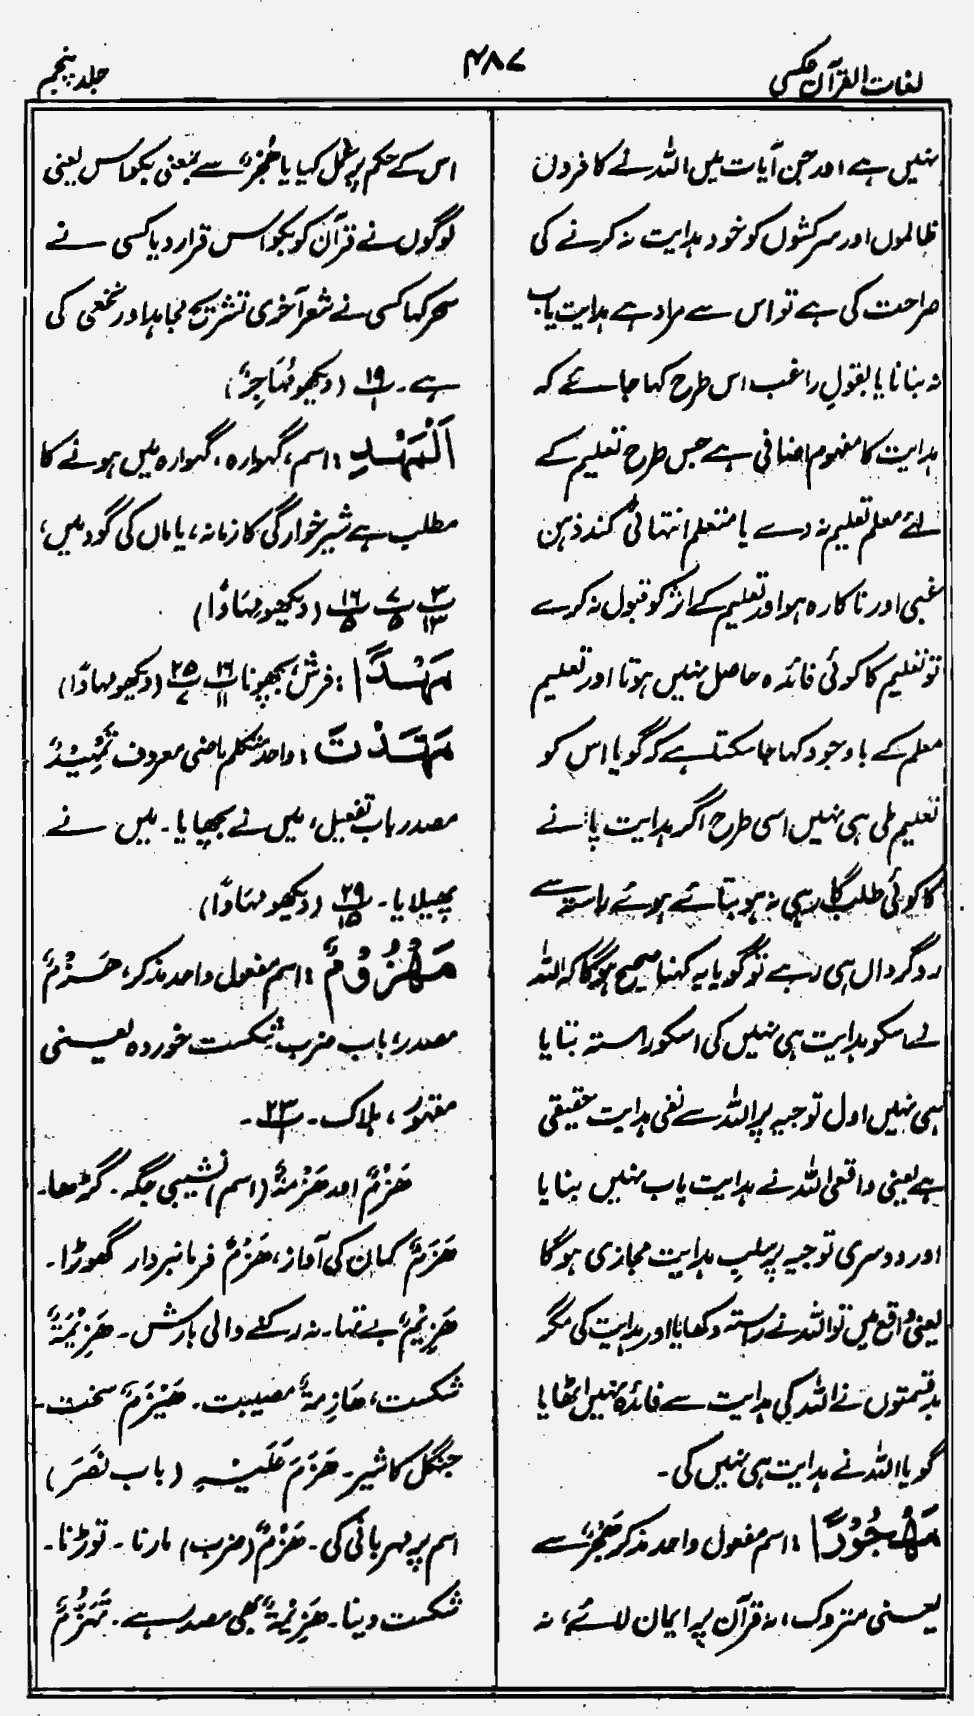 لغات القرآن عکسی
۴۸۷
جلد پنجم
نہیں ہے اور جن آیات میں اللہ نے کافروں
ظالموں اور سرکشوں کو خود ہدایت نہ کرنے کی
صراحت کی ہے تو اس سے مراد ہے ہدایت یاب
نہ بنانا یا بقول راغب اس طرح کہا جائے کہ
ہدایت کا مفہوم اضافی ہے جس طرح تعلیم کے
لئے معلم تعلیم نہ دے یا متعلم انتہائی کند ذہن
غبی اور ناکارہ ہو اور تعلیم کے اثر کو قبول نہ کرے
تو تعلیم کا کوئی فائدہ حاصل نہیں ہوتا اور تعلیم
معلم کے باوجود کہا جا سکتا ہے کہ گویا اس کو
تعلیم ملی ہی نہیں اسی طرح اگر ہدایت پانے
کا کوئی طلبگار ہی نہ ہو بتائے ہوئے راستہ سے
روگرداں ہی رہے تو گویا یہ کہنا صحیح ہوگا کہ اللہ
نے اسکو ہدایت ہی نہیں کی اسکو راستہ بتایا
ہی نہیں اول توجیہ پر اللہ سے نفی ہدایت حقیقی
ہے یعنی واقعی اللہ نے ہدایت یاب نہیں بنایا
اور دوسری توجیہ پر سلب ہدایت مجازی ہوگا
یعنی واقع میں تو اللہ نے راستہ دکھایا اور ہدایت کی مگر
بدقسمتوں نے اللہ کی ہدایت سے فائدہ نہیں اٹھایا
گویا اللہ نے ہدایت ہی نہیں کی۔
مَهْجُوْرًا : اسم مفعول واحد مذکر هَجْرٌ سے
یعنی متروک، نہ قرآن پر ایمان لائے، نہ
اس کے حکم پر عمل کیا یا هُجْرٌ سے بمعنی بکواس یعنی
لوگوں نے قرآن کو بکواس قرار دیا کسی نے
سحر کہا کسی نے شعر آخری تشریح مجاہد اور نخعی کی
ہے۔ ۱۹/۱ (دیکھو مُهَاجِرٌ)
اَلْمَهْدِ : اسم، گہوارہ، گہوارہ میں ہونے کا
مطلب ہے شیر خوارگی کا زمانہ، یا ماں کی گود میں،
۳/۱۳ ۷/۵ ۱۶/۵ (دیکھو مِهَادًا)
مَهْدًا : فرش، بچھونا ۱۶/۱۱ ۲۵/۷ (دیکھو مهادًا)
مَهَّدْتُ : واحد متکلم ماضی معروف تَمْهِيْدٌ
مصدر باب تفعیل، میں نے بچھایا۔ میں نے
پھیلایا۔ ۲۹/۱۵ (دیکھو مهَادًا)
مَهْزُوْمٌ : اسم مفعول واحد مذکر، هَزْمٌ
مصدر، باب ضرب شکست خوردہ یعنی
مقہور، ہلاک۔ ۲۳/۱۔
هَزْمٌ اور هَزْمَةٌ (اسم) نشیبی جگہ۔ گڑھا۔
هَزَمٌ کمان کی آواز، هَزْمٌ فرمانبردار گھوڑا۔
هَزِيْمٌ بے تھا۔ نہ رکنے والی بارش۔ هَزِيْمَةٌ
شکست، هَازِمَةٌ مصیبت۔ هَيْزَمٌ سخت۔
جنگل کا شیر۔ هَزَمَ عَلَيْهِ (باب نَصَرَ)
اسم پر مہربانی کی۔ هَزْمٌ (ضرب) مارنا۔ توڑنا۔
شکست دینا۔ هَزِيْمَةٌ بھی مصدر ہے۔ تَهَزُّمٌ